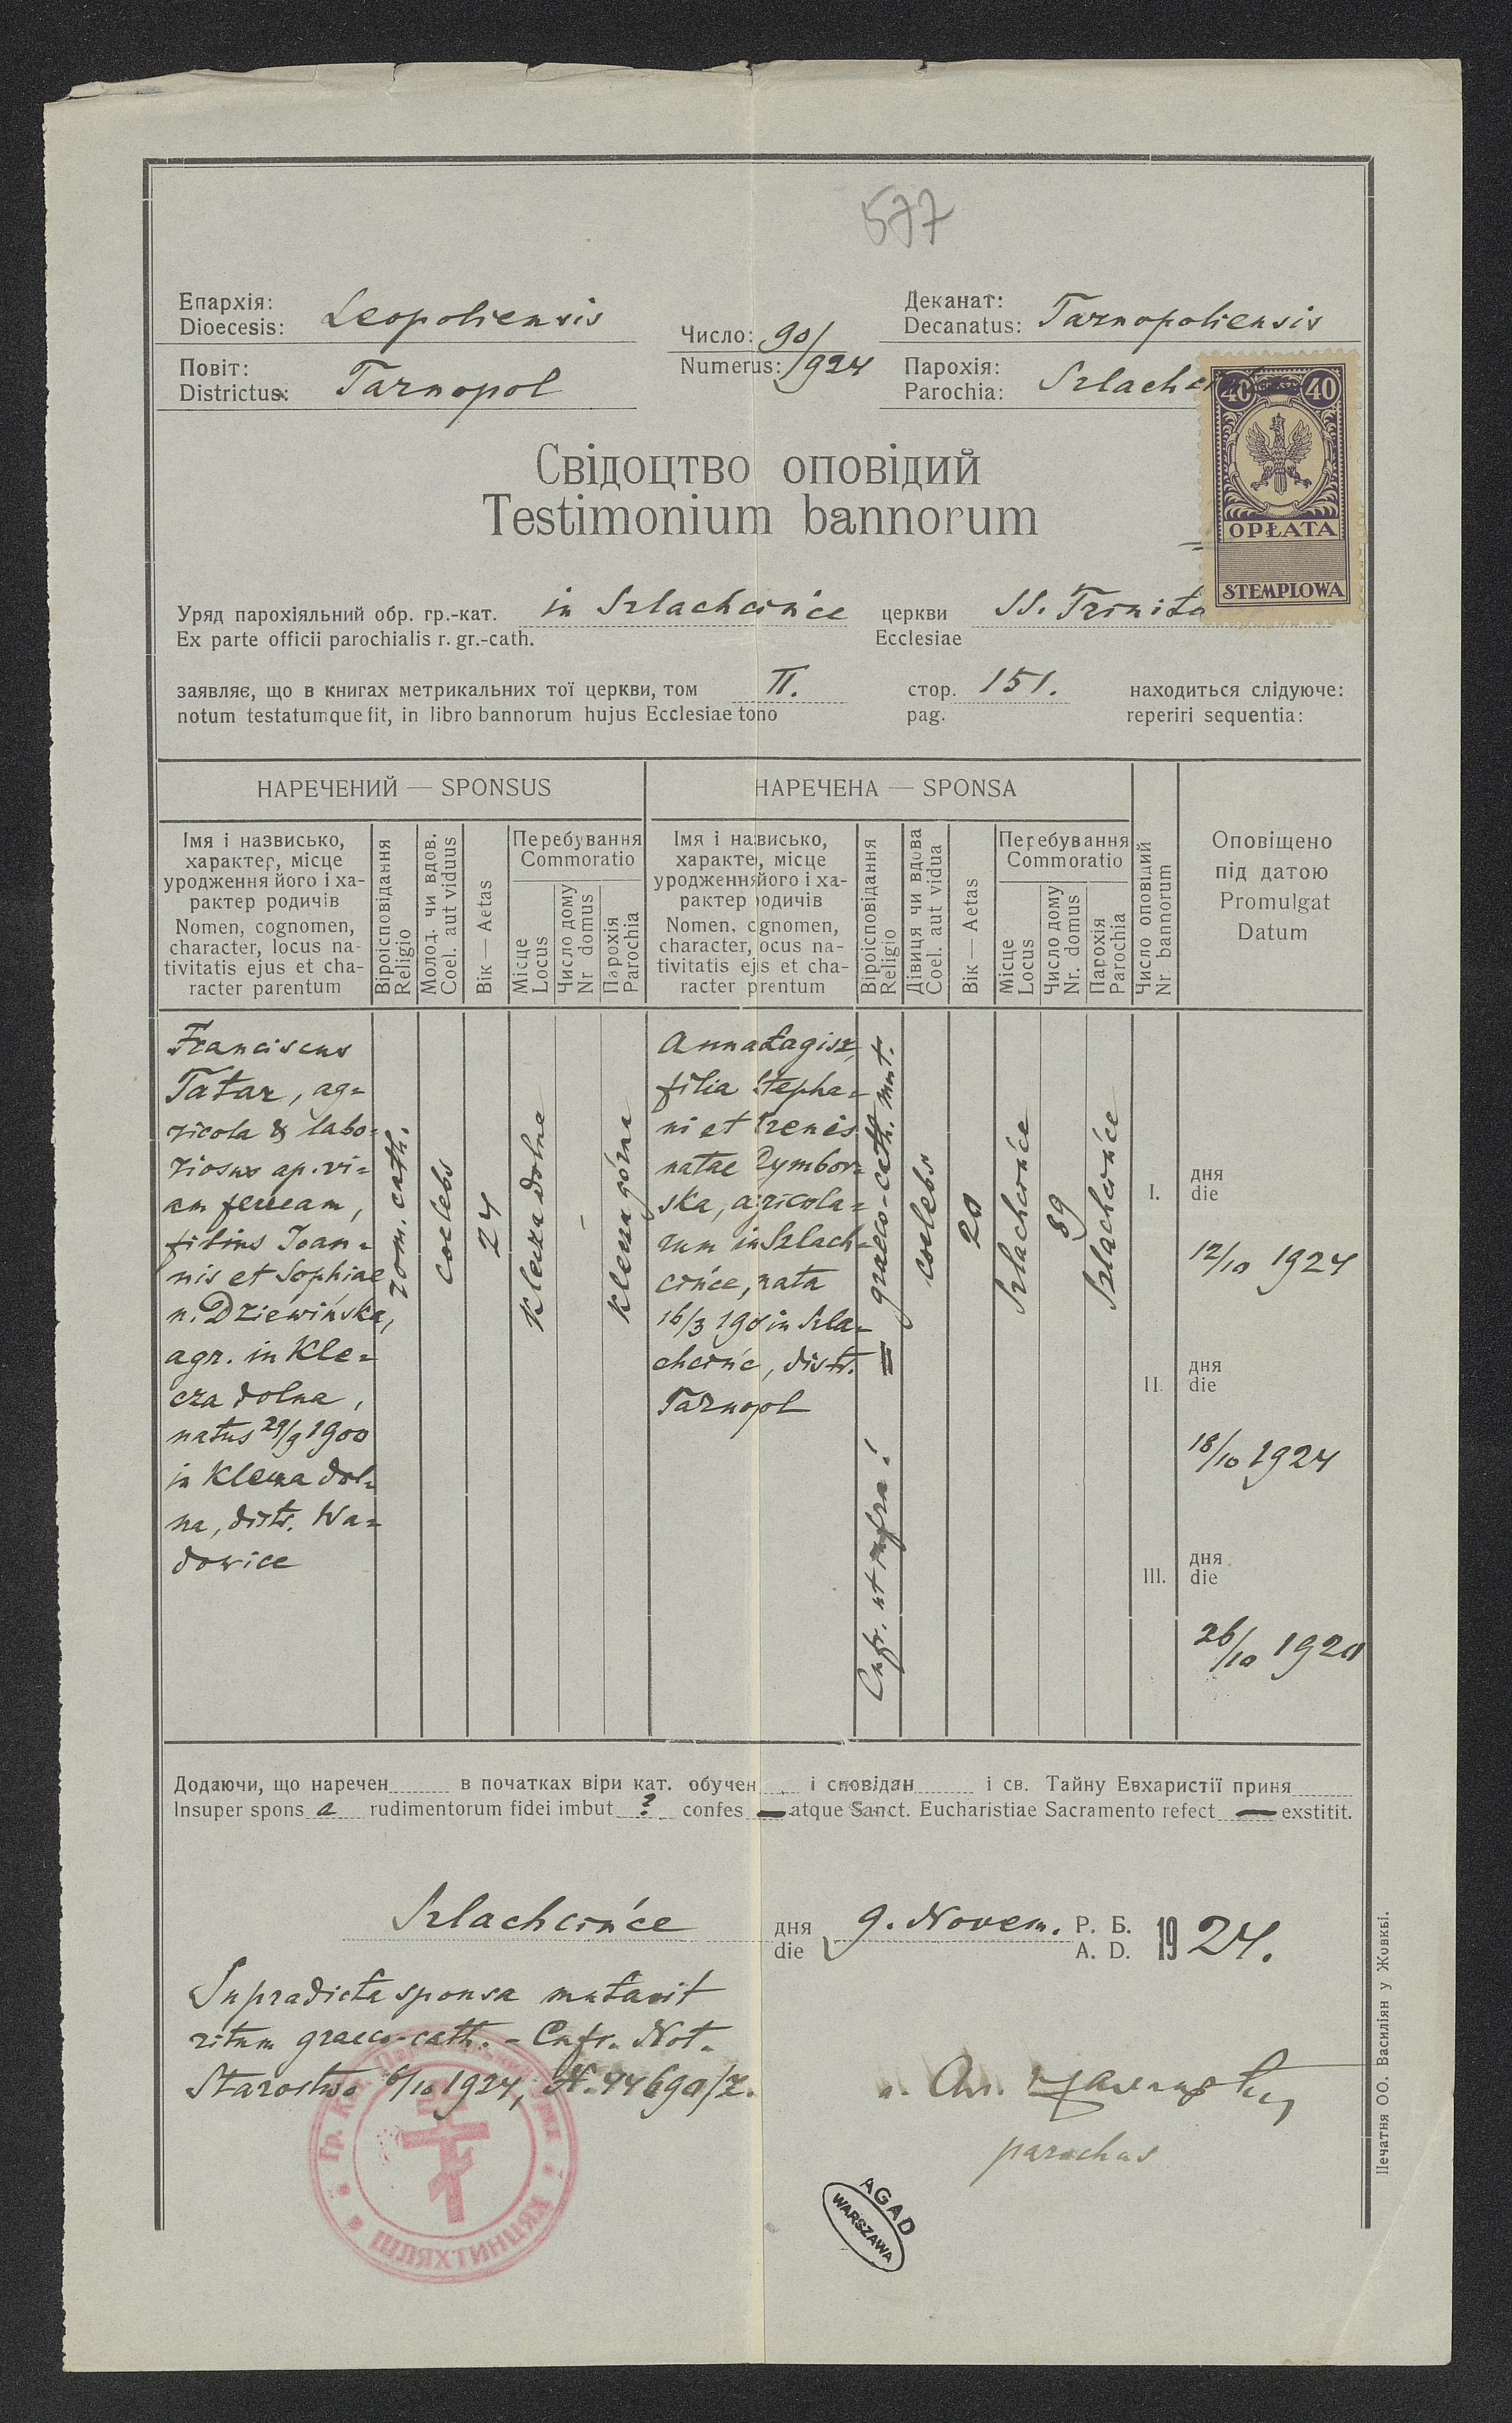 577
Епархія:
Dioecesis: Leopoliensis
Число: 90/
Numerus: /924
Деканат:
Decanatus: Tarnopoliensis
Повіт:
Districtus: Tarnopol
Парохія:
Parochia: Szlachcińce
40 40
OPŁATA
STEMPLOWA
Свідоцтво оповідий
Testimonium bannorum
Уряд парохіяльний обр. гр.-кат. in Szlachcińce церкви SS. Trinita
Ex parte officii parochialis r. gr.-cath. Ecclesiae
заявляє, що в книгах метрикальних тої церкви, том II. стор. 151. находиться слідуюче:
notum testatumque fit, in libro bannorum hujus Ecclesiae tono pag. reperiri sequentia:
НАРЕЧЕНИЙ — SPONSUS
НАРЕЧЕНА — SPONSA
Імя і назвисько,
характер, місце
уродження його і ха-
рактер родичів
Nomen, cognomen,
character, locus na-
tivitatis ejus et cha-
racter parentum
Віроісповідання
Religio
Молод. чи вдов.
Coel. aut viduus
Вік — Aetas
Перебування
Commoratio
Місце
Locus
Число дому
Nr domus
Парохія
Parochia
Імя і назвисько,
характе, місце
уродження його і ха-
рактер родичів
Nomen, cgnomen,
character, ocus na-
tivitatis ejs et cha-
racter prentum
Віроісповідання
Religio
Дівиця чи вдова
Coel. aut vidua
Вік — Aetas
Перебування
Commoratio
Місце
Locus
Число дому
Nr. domus
Парохія
Parochia
Число оповідий
Nr. bannorum
Оповіщено
під датою
Promulgat
Datum
Franciscus
Tatar, ag=
ricola & labo=
riosus ap. vi=
am ferream,
filius Joan=
nis et Sophiae
n. Dziewińska,
agr. in Kle=
cza dolna,
natus 29/9 1900
in Klecza dol=
na, distr. Wa=
dowice
rom. cath.
coelebs
24
Klecza dolna
-
Klecza górna
Anna Łagisz,
filia Stepha=
ni et Irenis
natae Dymbor=
ska, agricola=
rum in Szlach=
cińce, nata
16/3 190 in Szla=
chcińce, distr.
Tarnopol
= graeco-cath. mut.
Cnfr. ut infra!
coelebs
20
Szlachcińce
89
Szlachcińce
I.
дня
die
12/10 1924
II.
дня
die
18/10 1924
III.
дня
die
26/10 1924
Додаючи, що наречен в початках віри кат. обучен і сповідан і св. Тайну Евхаристії приня
Insuper spons a rudimentorum fidei imbut ? confes — atque Sanct. Eucharistiae Sacramento refect — exstitit.
Szlachcińce дня 9. Novem. Р. Б. 1924.
die A. D.
Supradicta sponsa mutavit
ritum graeco-cath. - Cnfr. Not.
Starostwo 6/10 1924, N. 44690/z.
parochus
ШЛЯХТИНЦЯХ
AGAD
WARSZAWA
Печатня ОО. Василіян у Жовкві.